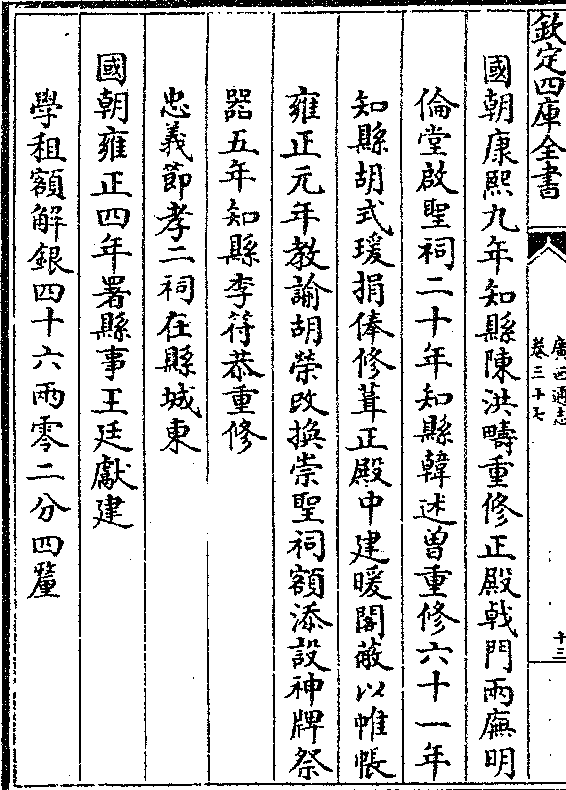 欽定四庫全書
廣西通志
卷三十七
十三
國朝康熙九年知縣陳洪疇重修正殿㦸門兩廡明
倫堂啟聖祠二十年知縣韓述曾重修六十一年
知縣胡式瑗捐俸修葺正殿中建暖閣蔽以帷帳
雍正元年教諭胡榮改換崇聖祠額添設神牌祭
器五年知縣李符恭重修
忠義節孝二祠在縣城東
國朝雍正四年署縣事王廷獻建
學租額解銀四十六兩零二分四釐